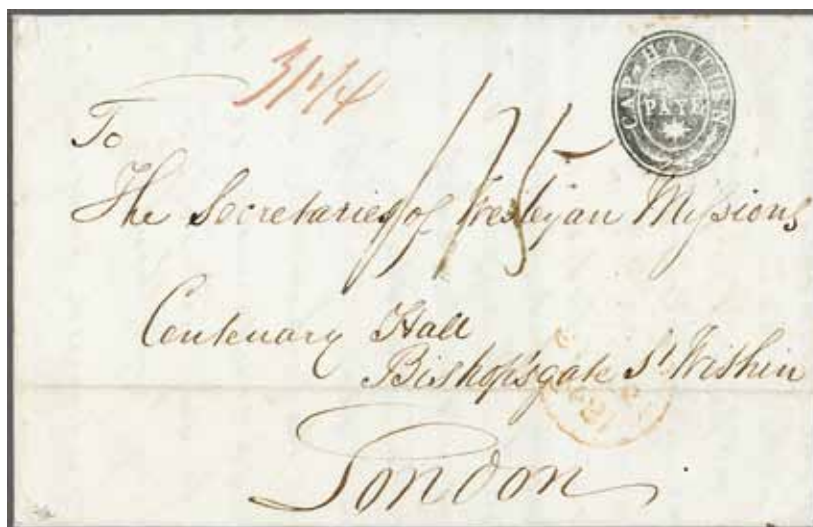 CAP HAITIEN
PAYÉ
To
The Secretaries of Wesleyan Missions
Centenary Hall
Bishopsgate St. Within
London